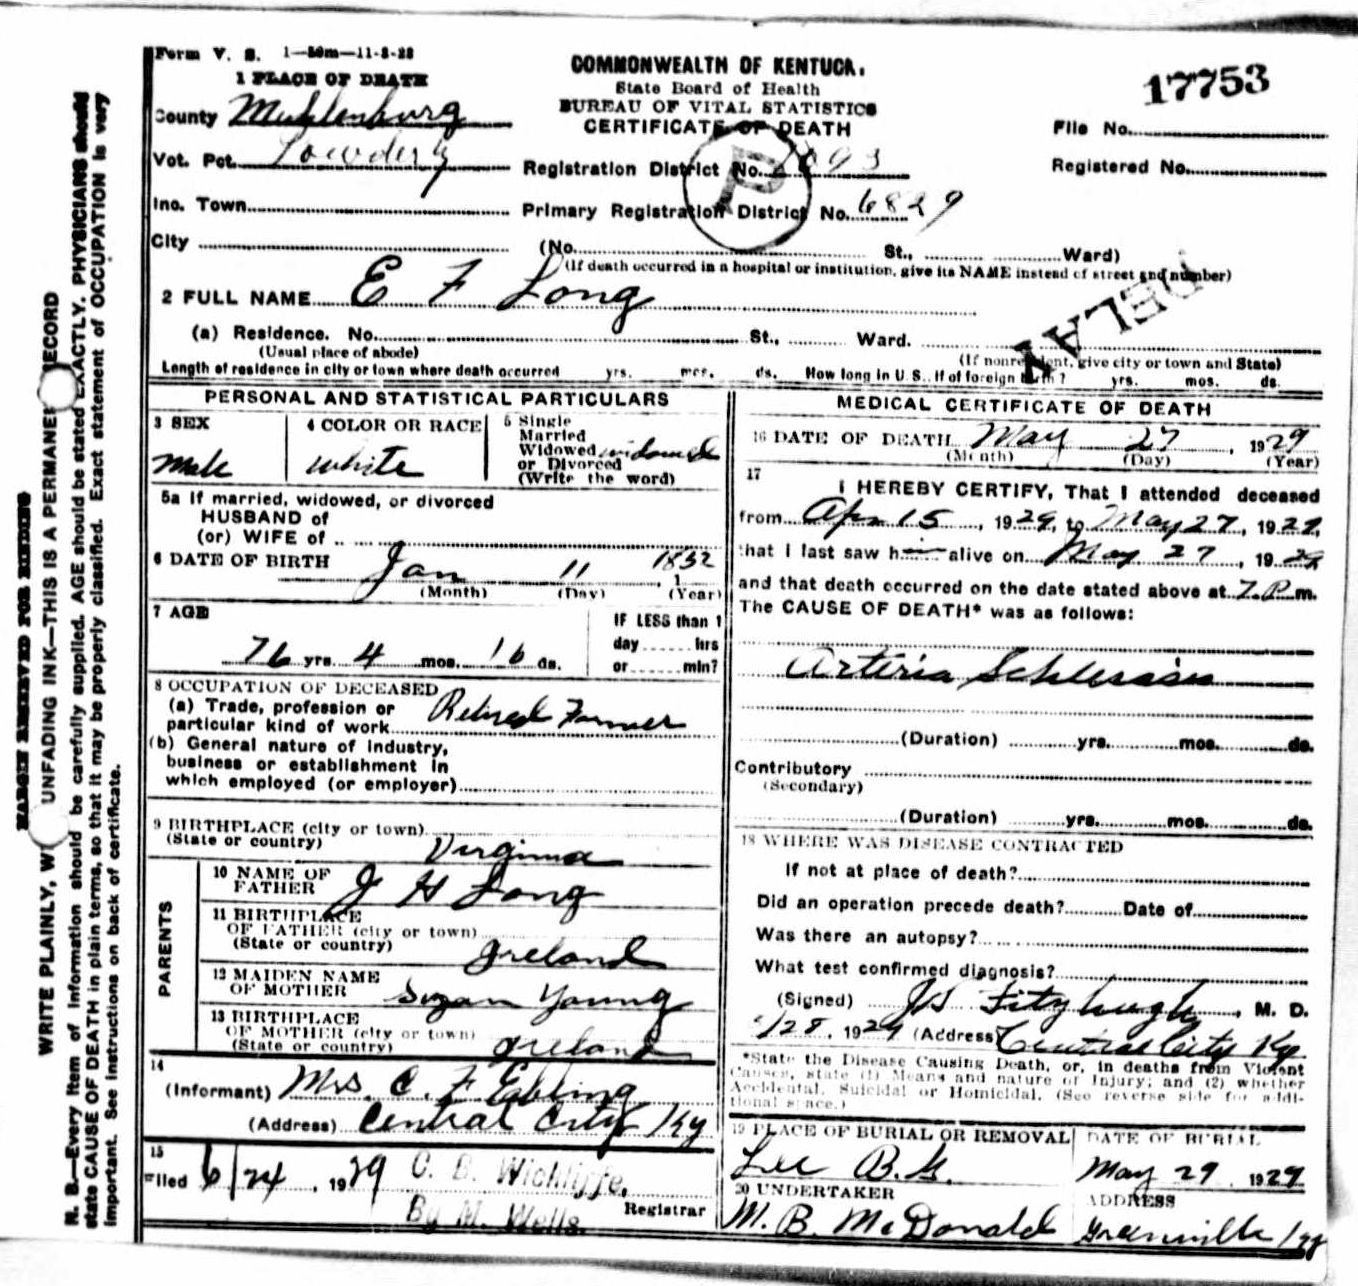 Form V. S. 1—50m—11-2-28
COMMONWEALTH OF KENTUCK.
State Board of Health
BUREAU OF VITAL STATISTICS
CERTIFICATE OF DEATH
17753
1 PLACE OF DEATH
County Muhlenburg
Vot. Pct. Powderly
Inc. Town
City
Registration District No. 1093
Primary Registration District No. 6829
File No.
Registered No.
P
(No. St., Ward)
(If death occurred in a hospital or institution, give its NAME instead of street and number)
DELAY
2 FULL NAME E F Long
(a) Residence. No. St., Ward.
(Usual place of abode)
(If nonresident, give city or town and State)
Length of residence in city or town where death occurred yrs. mos. ds. How long in U. S., if of foreign birth? yrs. mos. ds.
PERSONAL AND STATISTICAL PARTICULARS
3 SEX
Male
4 COLOR OR RACE
White
5 Single
Married
Widowed widowed
or Divorced
(Write the word)
5a If married, widowed, or divorced
HUSBAND of
(or) WIFE of
6 DATE OF BIRTH
Jan 11 1852, 1
(Month) (Day) (Year)
7 AGE
76 yrs. 4 mos. 16 ds.
IF LESS than 1
day hrs
or min?
8 OCCUPATION OF DECEASED
(a) Trade, profession or
particular kind of work Retired Farmer
(b) General nature of Industry,
business or establishment in
which employed (or employer)
9 BIRTHPLACE (city or town)
(State or country) Virginia
PARENTS
10 NAME OF
FATHER J H Long
11 BIRTHPLACE
OF FATHER (city or town)
(State or country) Ireland
12 MAIDEN NAME
OF MOTHER Suzan Young
13 BIRTHPLACE
OF MOTHER (city or town)
(State or country) Ireland
14
(Informant) Mrs. C. F Ebling
(Address) Central City Ky
15
Filed 6/24, 1929 C. B. Wickliffe,
By M. Wells. Registrar
MEDICAL CERTIFICATE OF DEATH
16 DATE OF DEATH May 27, 1929
(Month) (Day) (Year)
17
I HEREBY CERTIFY, That I attended deceased
from Apr 15, 1929, to May 27, 1929,
that I last saw h im alive on May 27, 1929
and that death occurred on the date stated above at 7. P. m.
The CAUSE OF DEATH* was as follows:
Arteria Schlerosis
(Duration) yrs. mos. ds.
Contributory
(Secondary)
(Duration) yrs. mos. ds.
18 WHERE WAS DISEASE CONTRACTED
If not at place of death?
Did an operation precede death? Date of
Was there an autopsy?
What test confirmed diagnosis?
(Signed) Fitzhugh, M. D.
5/28, 1929 (Address) Central City Ky
*State the Disease Causing Death, or, in deaths from Violent
Causes, state (1) Means and nature of Injury; and (2) whether
Accidental, Suicidal or Homicidal. (See reverse side for addi-
tional space.)
19 PLACE OF BURIAL OR REMOVAL
Lee B. G.
DATE OF BURIAL
May 29, 1929
20 UNDERTAKER
M. B. McDonald
ADDRESS
Greenville Ky
MARGIN RESERVED FOR BINDING
WRITE PLAINLY, W UNFADING INK—THIS IS A PERMANENT RECORD
N. B.—Every item of information should be carefully supplied. AGE should be stated EXACTLY. PHYSICIANS should
state CAUSE OF DEATH in plain terms, so that it may be properly classified. Exact statement of OCCUPATION is very
important. See instructions on back of certificate.